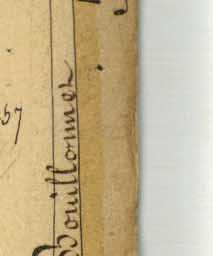 57
Bouillonner